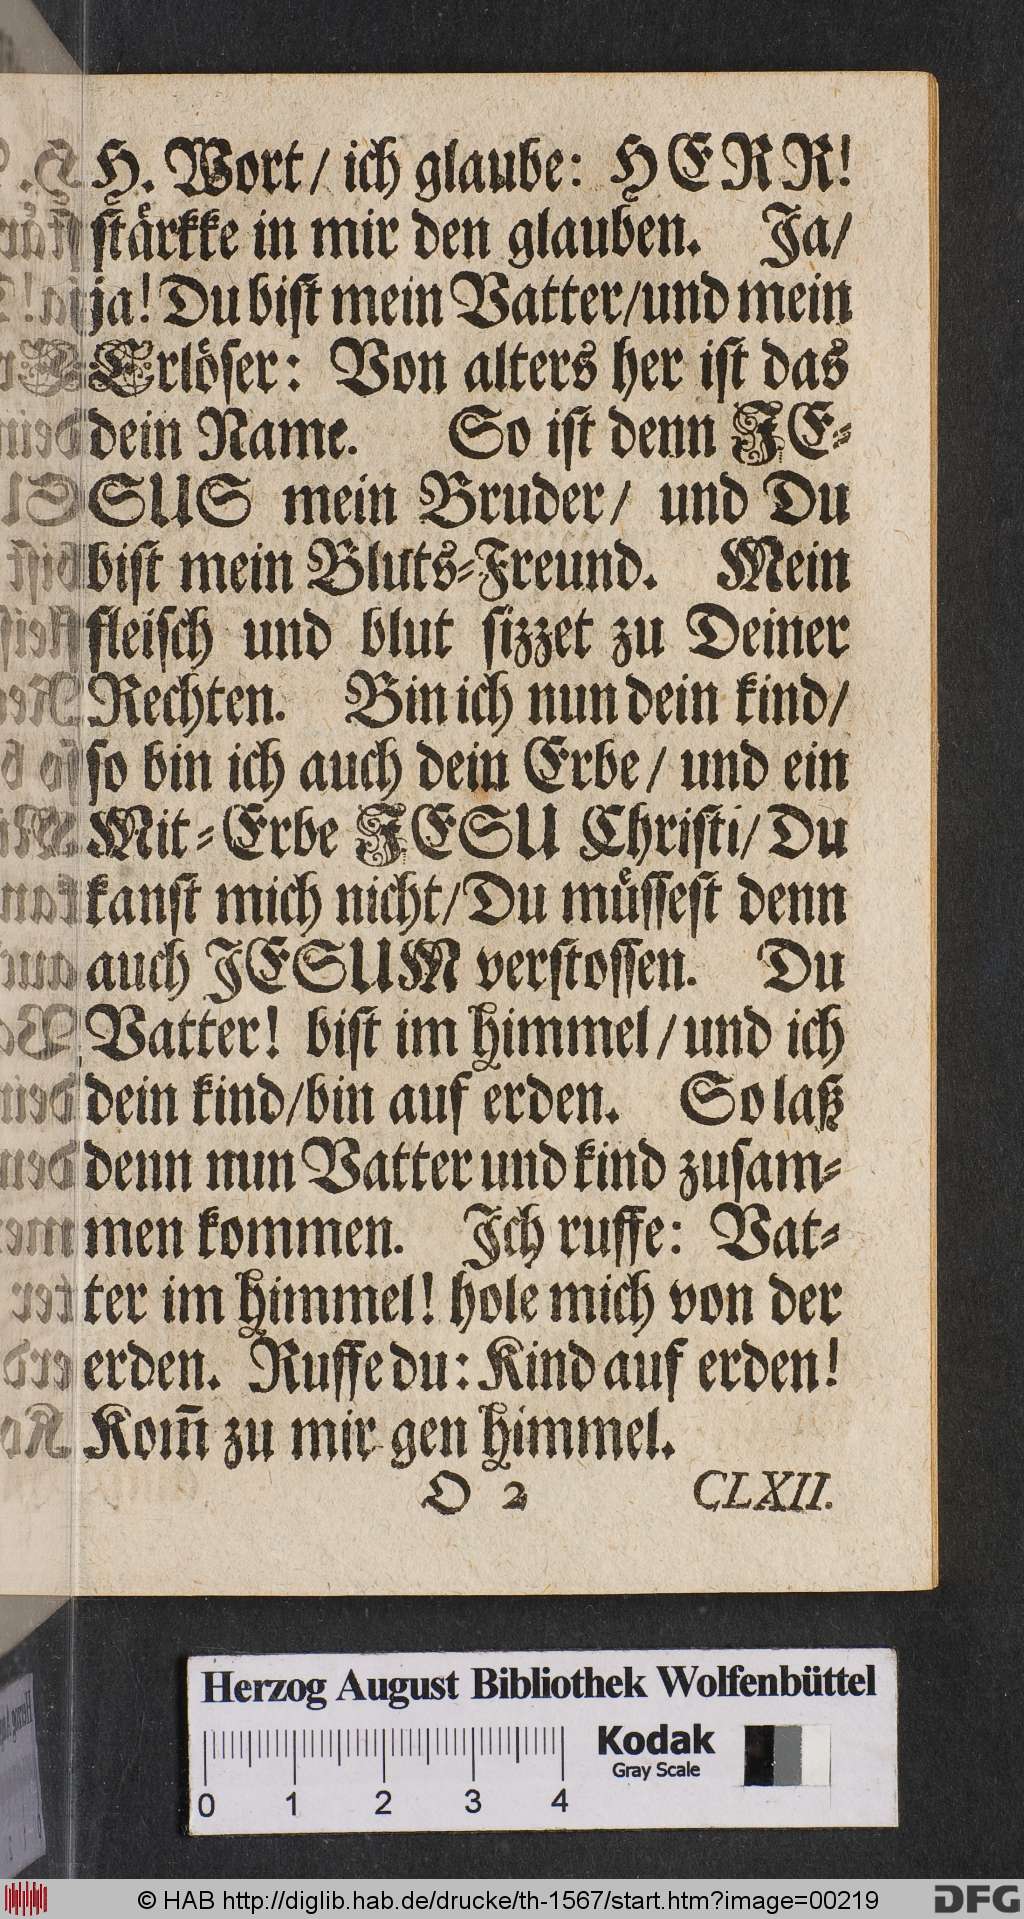 H. Wort / ich glaube: HERR!
ſtärkke in mir den glauben. Ja/
ja! Du biſt mein Vatter/und mein
Erlöſer: Von alters her iſt das
dein Name. So iſt denn JE-
SUS mein Bruder/ und Du
biſt mein Bluts-Freund. Mein
fleiſch und blut ſizzet zu Deiner
Rechten. Bin ich nun dein kind/
ſo bin ich auch dein Erbe / und ein
Mit-Erbe JESU Chriſti/ Du
kanſt mich nicht/ Du müſſeſt denn
auch JESUM verſtoſſen. Du
Vatter! biſt im himmel / und ich
dein kind/bin auf erden. So laß
denn nun Vatter und kind zuſam-
men kommen. Ich ruffe: Vat-
ter im himmel! hole mich von der
erden. Ruffe du: Kind auf erden!
Kom̃ zu mir gen himmel.
O 2 CLXII.
Herzog August Bibliothek Wolfenbüttel
Kodak
Gray Scale
0 1 2 3 4
© HAB http://diglib.hab.de/drucke/th-1567/start.htm?image=00219
DFG